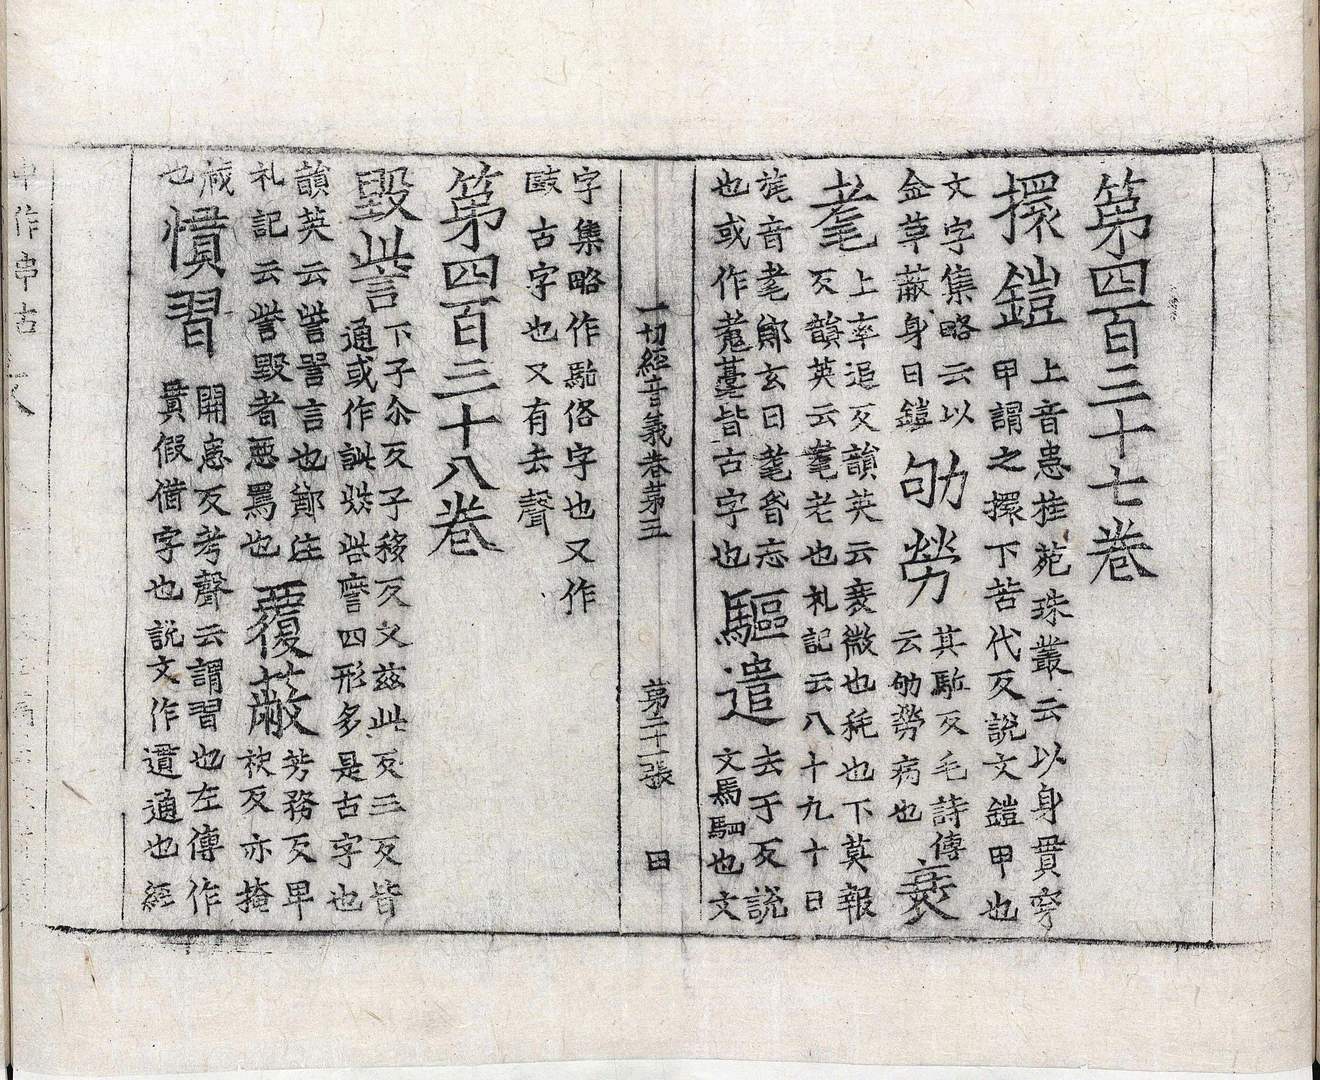 第四百三十七卷
擐鎧
上音患桂苑珠叢云以身貫穿
甲謂之擐下苦代反説文鎧甲也
文字集略云以
金革蔽身曰鎧
劬勞
其駈反毛詩傳
云劬勞病也
衰
耄
上率追反韻英云衰微也秏也下莫報
反韻英云耄老也礼記云八十九十曰
旄音耄鄭玄曰耄昏忘
也或作薹皆古字也
驅遣
去于反説
文馬馳也文
一切經音義卷第三
第二十一張
田
字集略作駈俗字也又作
敺古字也又有去聲
第四百三十八卷
毀呰
下子尒反子移反又茲此反三反皆
通或作訿呰訾四形多是古字也
韻英云訾詈言也鄭注
礼記云訾毀者惡罵也
覆蔽
芳務反卑
袂反亦掩
蔵
也
慣習
開患反考聲云謂習也左傳作
貫假借字也説文作遺通也經